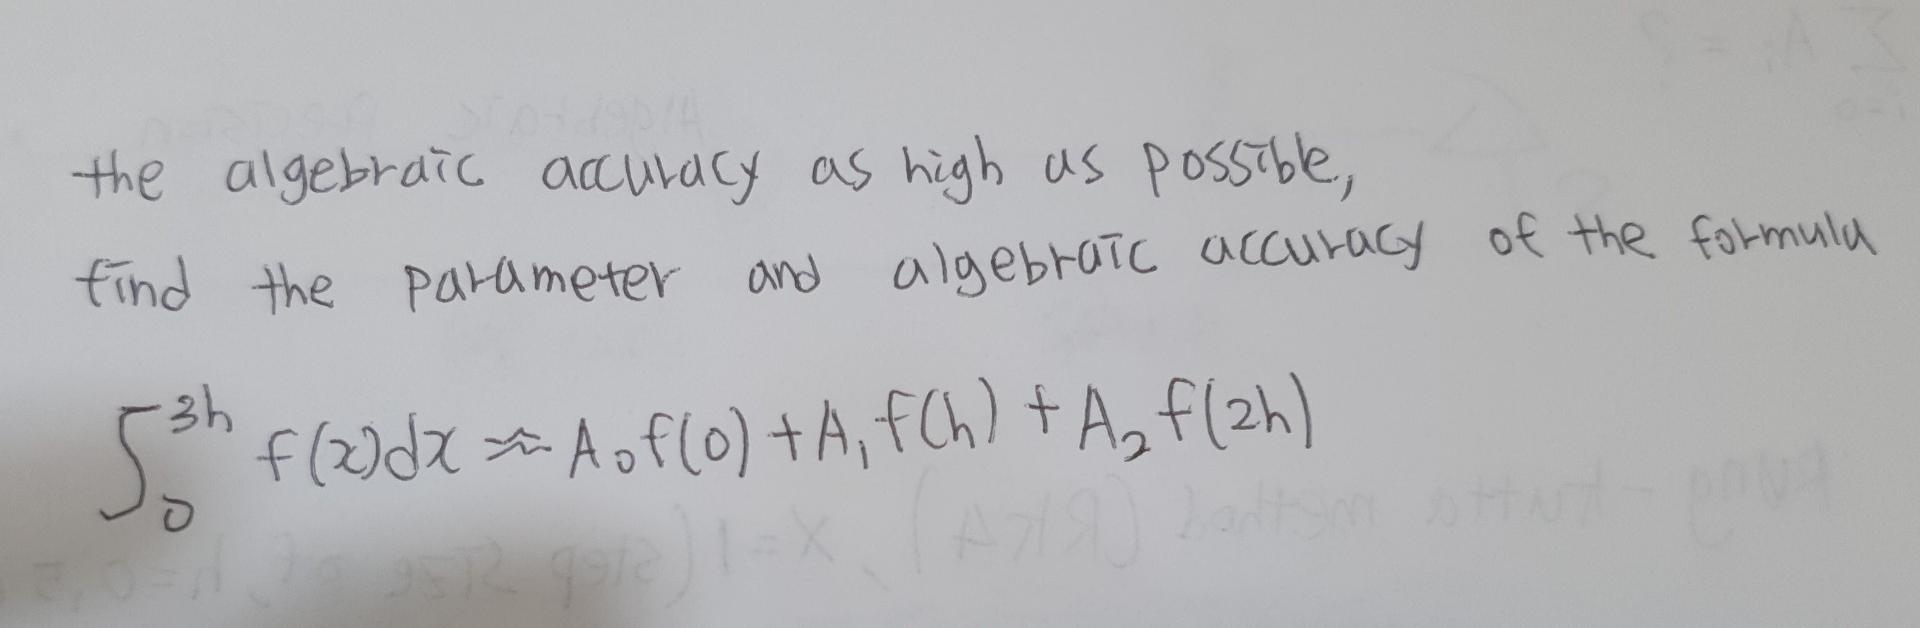 the algebraic accuracy as high as possible,
find the parameter and algebraic accuracy of the formula
∫₀³ʰ f(x)dx ≈ A₀f(0) + A₁f(h) + A₂f(2h)